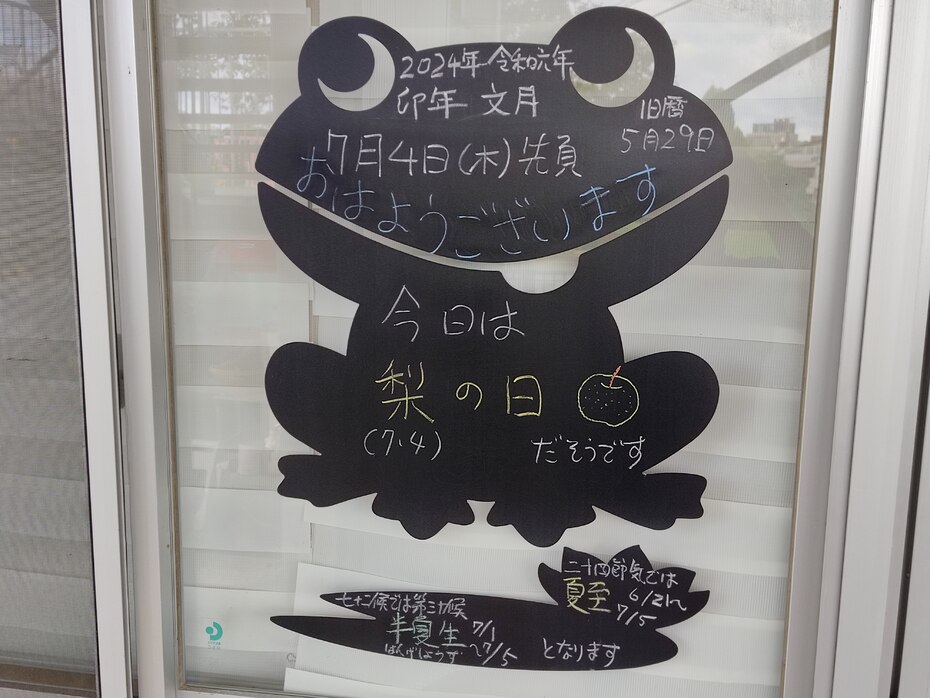 2024年 令和六年
卯年 文月
旧暦
5月29日
7月4日(木)先負
おはようございます
今日は
梨の日
(7・4)
だそうです
二十四節気では
夏至 6/21〜
7/5
七十二候では第三十候
半夏生 7/1
はんげしょうず 〜7/5
となります